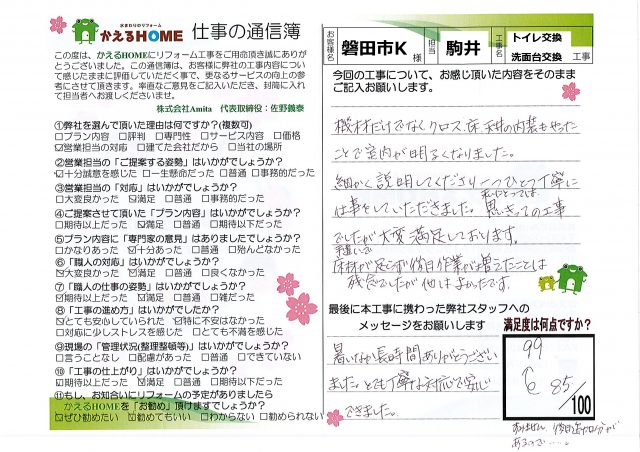 水まわりのリフォーム
かえるHOME 仕事の通信簿
この度は、かえるHOMEにリフォーム工事をご用命頂き誠にありが
とうございました。この通信簿は、お客様に弊社の工事内容につい
て感じたままに評価していただく事で、更なるサービスの向上の参
考にさせて頂きます。率直なご意見をご記入いただき、封筒に入れ
て担当者へお渡しくださいませ。
株式会社Amita 代表取締役：佐野義泰
①弊社を選んで頂いた理由は何ですか?(複数可)
□プラン内容 □評判 □専門性 □サービス内容 □価格
☑営業担当の対応 □建てた会社だから □当社の場所
②営業担当の「ご提案する姿勢」はいかがでしょうか?
☑十分誠意を感じた □一生懸命だった □普通 □事務的だった
③営業担当の「対応」はいかがでしょうか?
□大変良かった ☑満足 □普通 □事務的だった
④ご提案させて頂いた「プラン内容」はいかがでしょうか?
□期待以上だった ☑満足 □普通 □期待以下だった
⑤プラン内容に「専門家の意見」はありましたでしょうか?
□かなりあった ☑十分あった □普通 □殆んどなかった
⑥「職人の対応」はいかがでしょうか?
☑大変良かった □満足 □普通 □良くなかった
⑦「職人の仕事の姿勢」はいかがでしょうか?
☑期待以上だった □満足 □普通 □雑だった
⑧「工事の進め方」はいかがでしたか?
☑とても安心していられた ☑特に不安はなかった
□対応に少しストレスを感じた □とても不満を感じた
⑨現場の「管理状況(整理整頓等)」はいかがでしょうか?
□言うことなし □配慮があった □普通 □できていない
⑩「工事の仕上がり」はいかがでしょうか?
☑期待以上だった ☑満足 □普通 □期待以下だった
⑪もし、お知合いにリフォームの予定がありましたら
かえるHOMEを「お勧め」頂けますでしょうか?
☑ぜひ勧めたい ☑勧めてもいい □わからない □勧められない
お客様名 磐田市K 様 担当 駒井 工事名 トイレ交換
洗面台交換 工事
今回の工事について、お感じ頂いた内容をそのまま
ご記入お願いします。
機材だけでなくクロス、床、天井の内装もやった
ことで室内が明るくなりました。
細かく説明してくださり一つひとつ丁寧に
仕事をしていただきました。私にとっては思いきっての工事
でしたが大変満足しております。
手違いで
床材が足らず後日作業が増えたことは
残念でしたが他は良かったです。
最後に本工事に携わった弊社スタッフへの
メッセージをお願いします
暑いなか長時間ありがとうござい
ました。とても丁寧な対応で安心
できました。
満足度は何点ですか?
99
85/
100